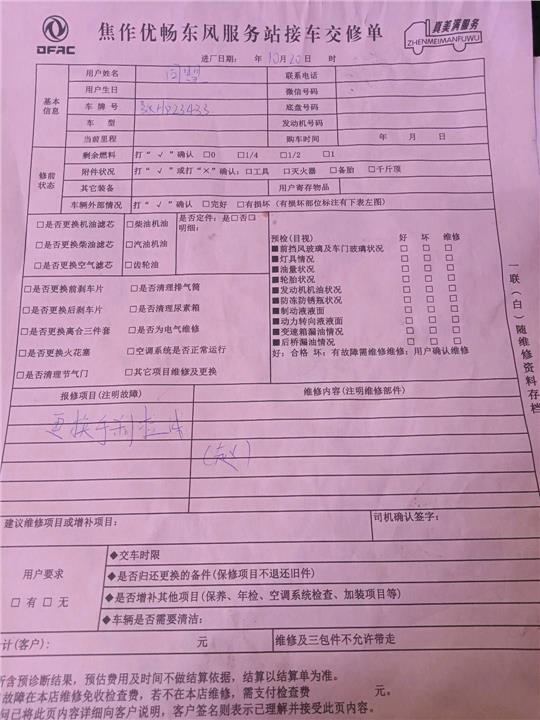 DFAC
焦作优畅东风服务站接车交修单
真美满服务
ZHENMEIMANFUWU
进厂日期： 年 10月 20日 时
基本信息
用户姓名 联系电话
用户生日 微信号码
车牌号 底盘号码
车型 发动机号码
当前里程 购车时间 年 月 日
修前状态
剩余燃料 打“√”确认 □0 □1/4 □1/2 □1
附件状况 打“√”或打“×”确认：□工具 □灭火器 □备胎 □千斤顶
其它装备 用户寄存物品
车辆外部情况 打“√”确认 □完好 □有损坏（有损坏部位标注有下表左图）
□是否更换机油滤芯 □柴油机油 是否定件：是□否□
□是否更换柴油滤芯 □汽油机油 明细：
□是否更换空气滤芯 □齿轮油
□是否更换前刹车片 □是否清理排气筒
□是否更换后刹车片 □是否清理尿素箱
□是否更换离合三件套 □是否为电气维修
□是否更换火花塞 □空调系统是否正常运行
□是否清理节气门 □其它项目维修及更换
预检(目视) 好 坏 维修
■前挡风玻璃及车门玻璃状况 □ □ □
■灯具情况 □ □ □
■油量状况 □ □ □
■轮胎状况 □ □ □
■发动机机油状况 □ □ □
■防冻防锈瓶状况 □ □ □
■制动液液面 □ □ □
■动力转向液液面 □ □ □
■变速箱漏油情况 □ □ □
■后桥漏油情况 □ □ □
好：合格 坏：有故障需维修维修：用户确认维修
一联（白）随维修资料存档
报修项目(注明故障) 维修内容(注明维修部件)
更换手刹拉
建议维修项目或增补项目： 司机确认签字：
用户要求
□有□无
◆交车时限
◆是否归还更换的备件(保修项目不退还旧件)
◆是否增补其他项目(保养、年检、空调系统检查、加装项目等)
◆车辆是否需要清洁：
计(客户)： 元 维修及三包件不允许带走
所含预诊断结果，预估费用及时间不做结算依据，结算以结算单为准。
故障在本店维修免收检查费，若不在本店维修，需支付检查费 元。
可已将此页内容详细向客户说明，客户签名则表示已理解并接受此页内容。